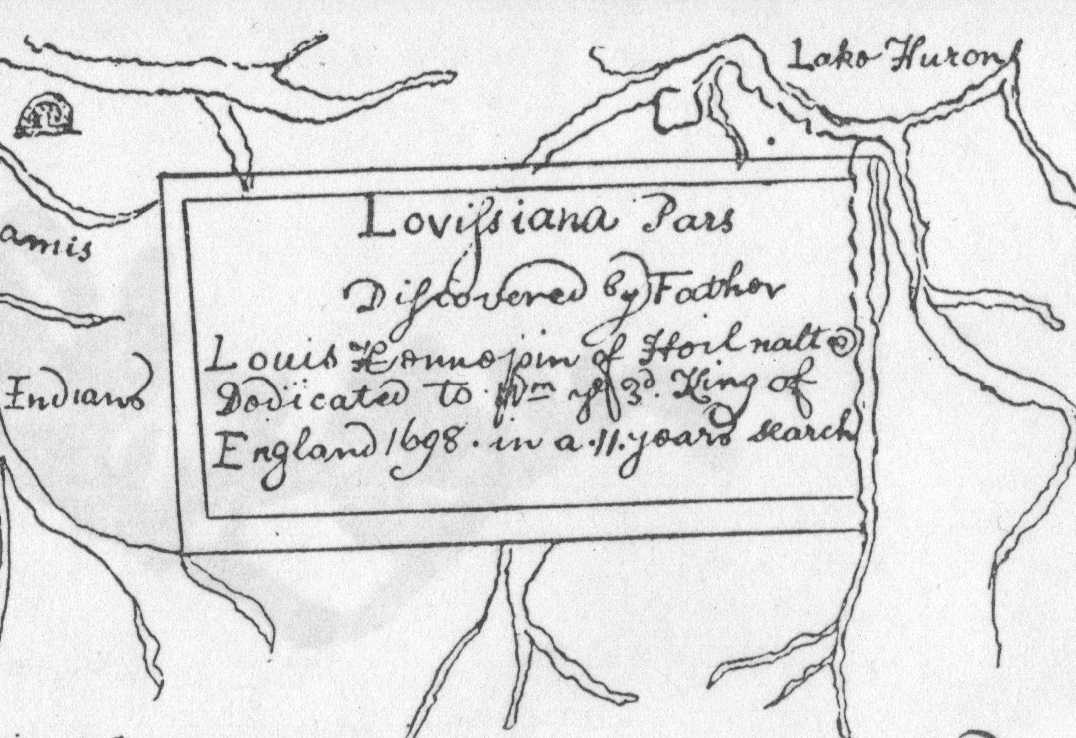 Lake Huron
Lovisiana Pars
Discovered by Father
Louis Hennepin of Hoil nalt &
Dedicated to Wm ye 3d. King of
England 1698. in a .11. years search
amis
Indians